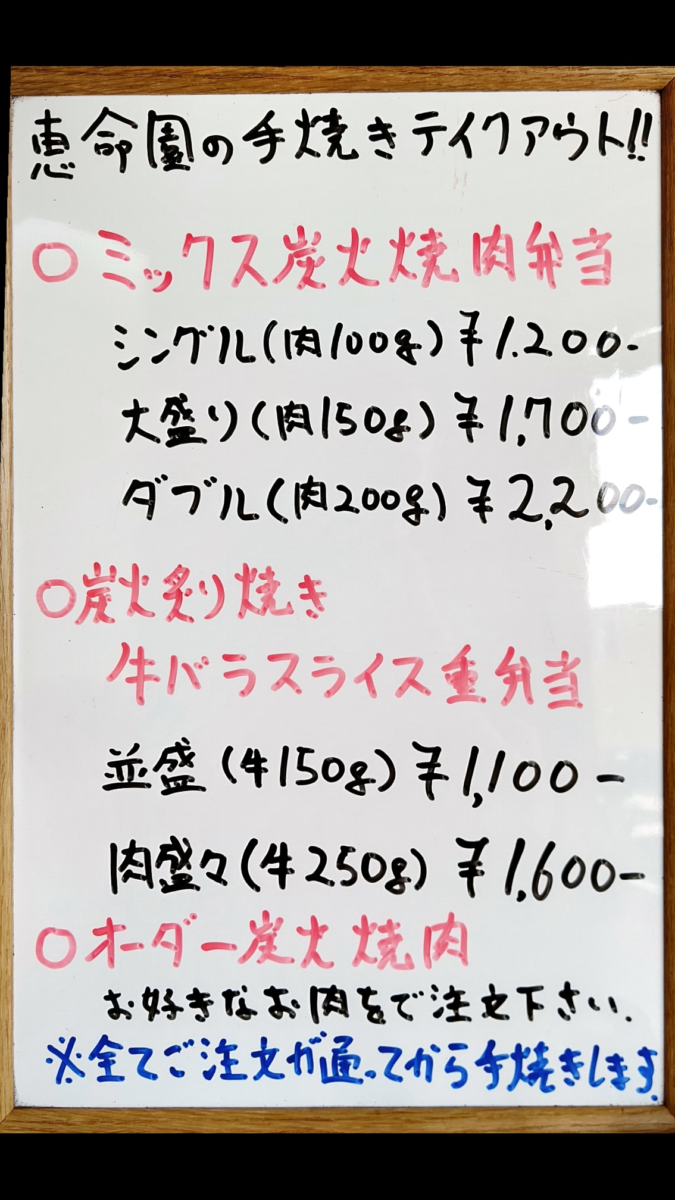 恵命園の手焼きテイクアウト!!
○ミックス炭火焼肉弁当
シングル(肉100g)¥1.200-
大盛り(肉150g)¥1,700-
ダブル(肉200g)¥2,200-
○炭火炙り焼き
牛バラスライス重弁当
並盛(牛150g)¥1,100-
肉盛々(牛250g)¥1,600-
○オーダー炭火焼肉
お好きなお肉をで注文下さい.
※全てご注文が通ってから手焼きします.